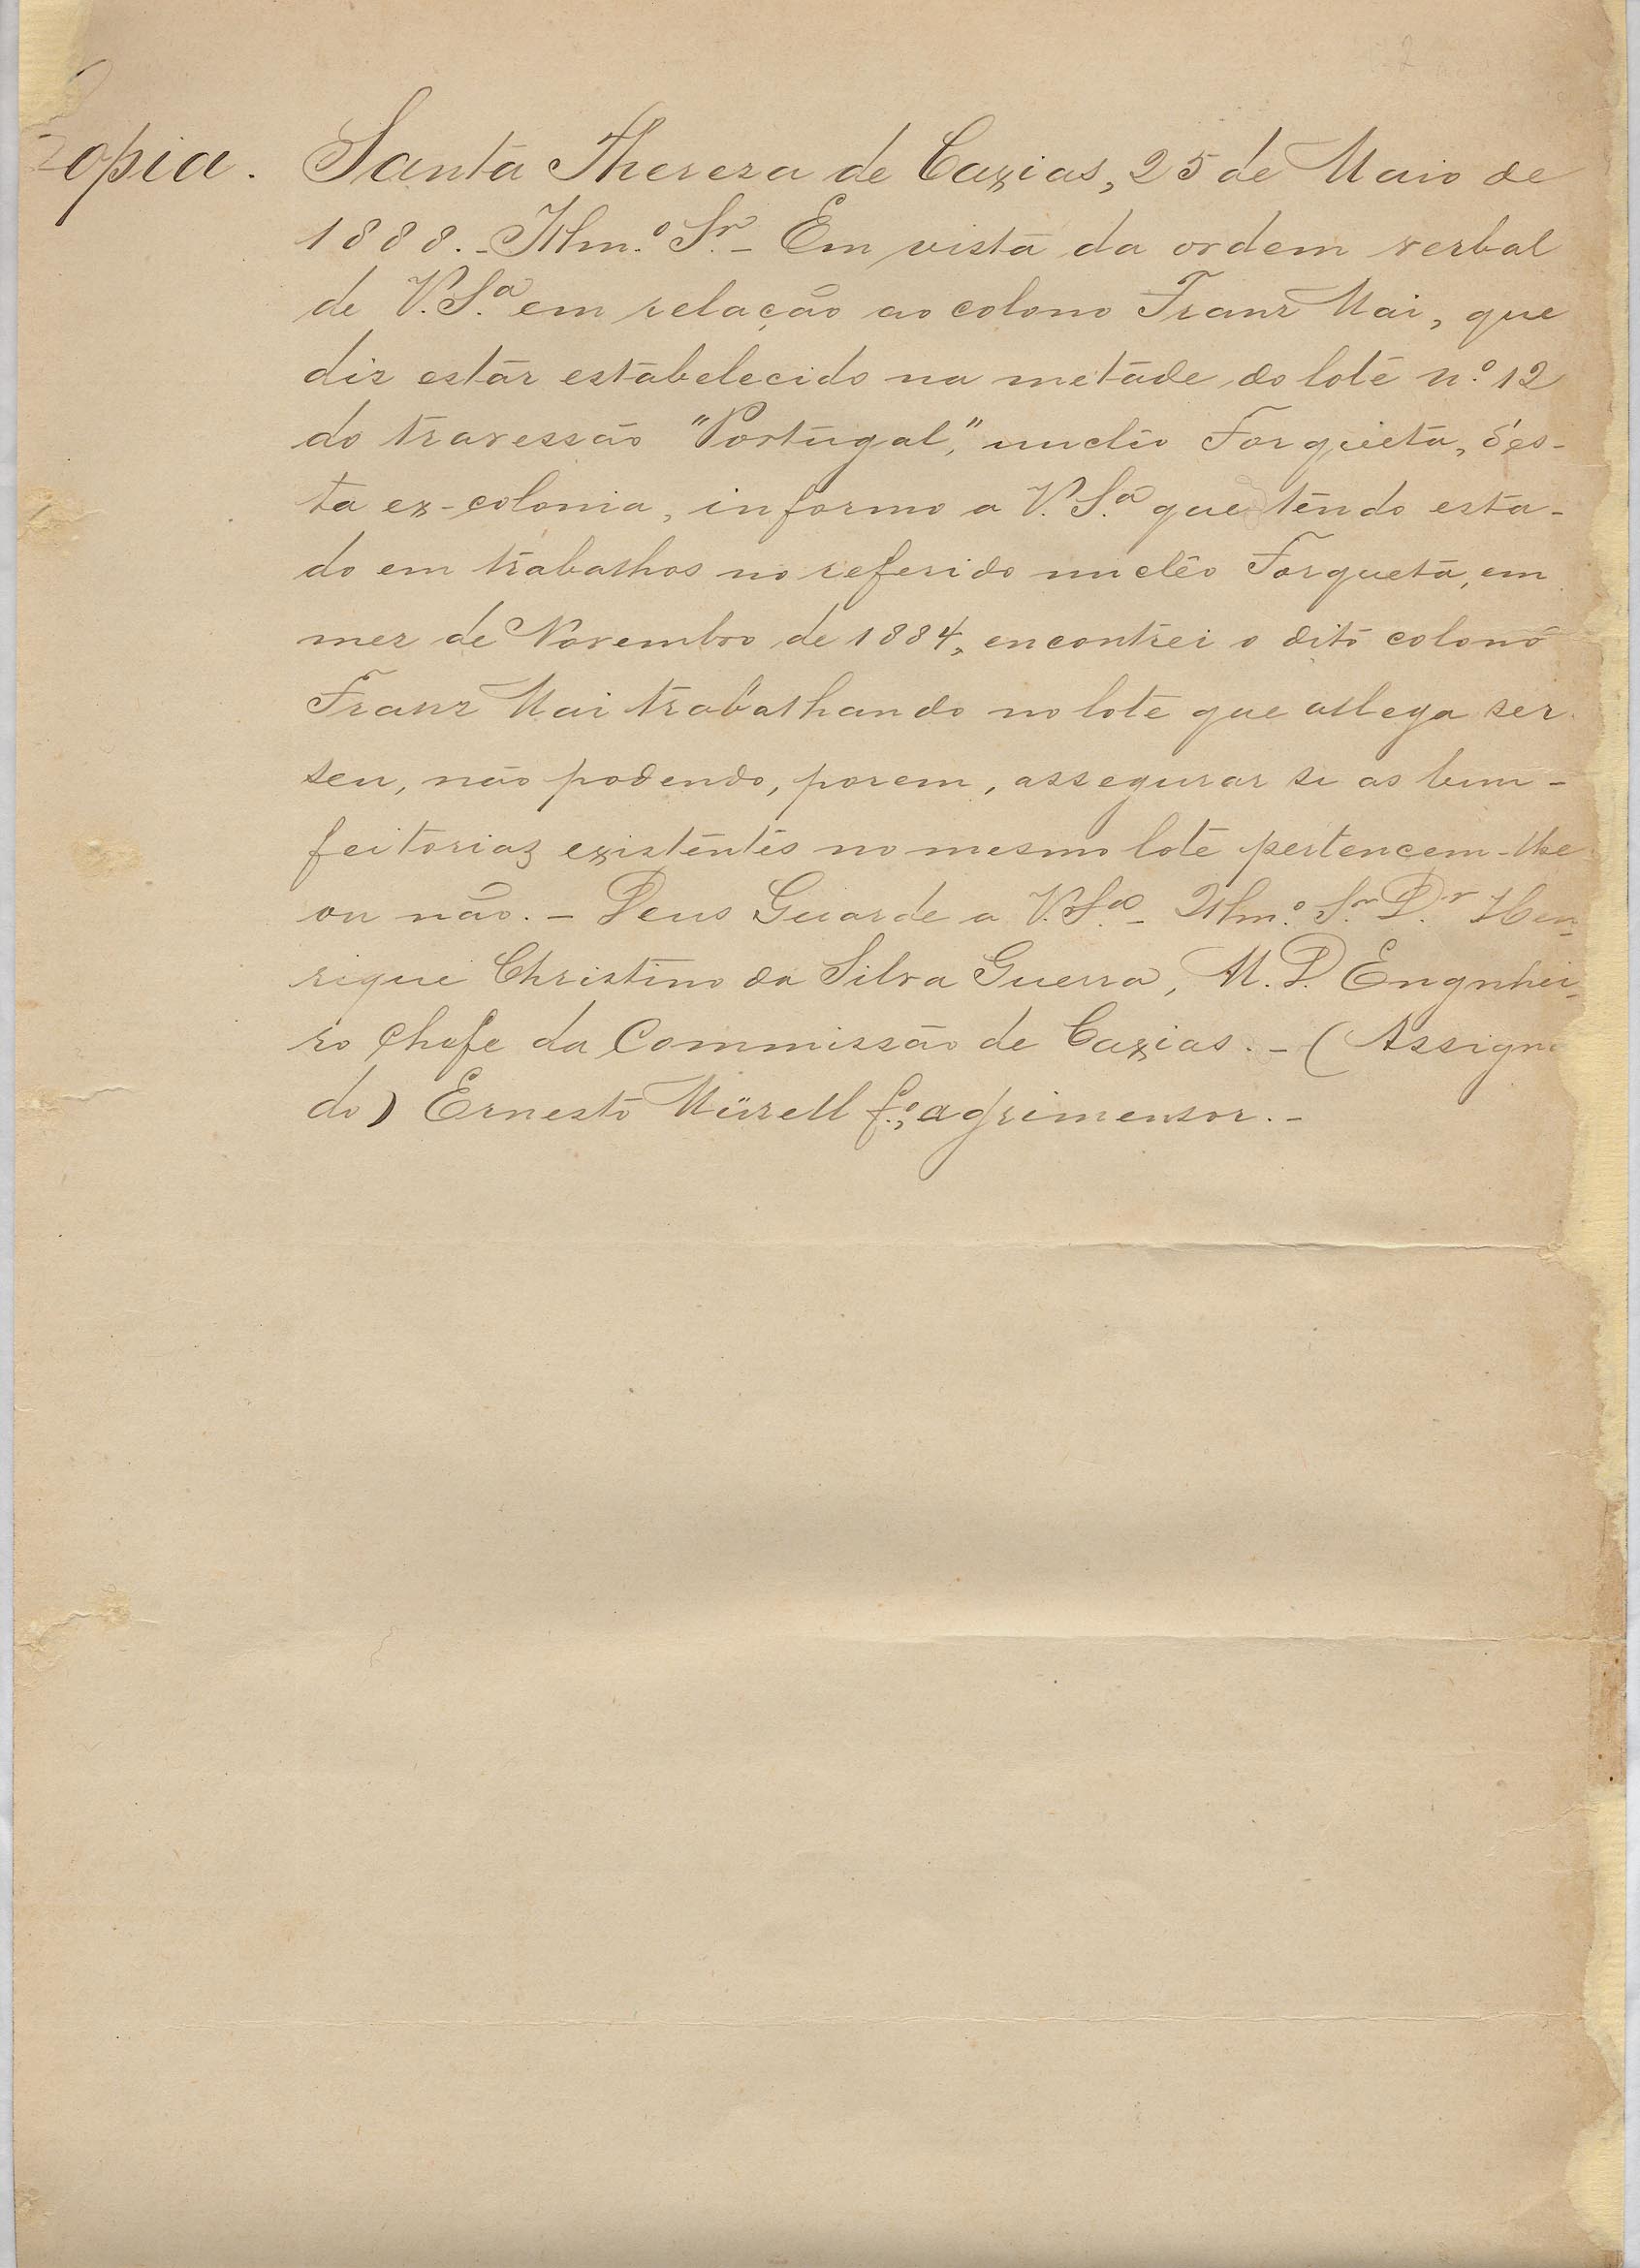 Copia. Santa Thereza de Caxias, 25 de Maio de
1888. - Illm.º Sr. - Em vista da ordem verbal
de V. S.ª em relação ao colono Franz Mai, que
diz estar estabelecido na metade do lote n.º 12
do travessão "Portugal", nucleo Forqueta, d'es-
ta ex-colonia, informo a V. S.ª que tendo esta-
do em trabalhos no referido nucleo Forqueta, em
mez de Novembro de 1884, encontrei o dito colono
Franz Mai trabalhando no lote que allega ser
seu, não podendo, porem, assegurar si as bem-
feitorias existentes no mesmo lote pertencem-lhe
ou não. - Deus Guarde a V. S.ª - Illm.º Sr. D.r Hen-
rique Christino da Silva Guerra, M. D. Engnhei-
ro Chefe da Commissão de Caxias. - (Assigna
do) Ernesto Mürell f.º, agrimensor. -